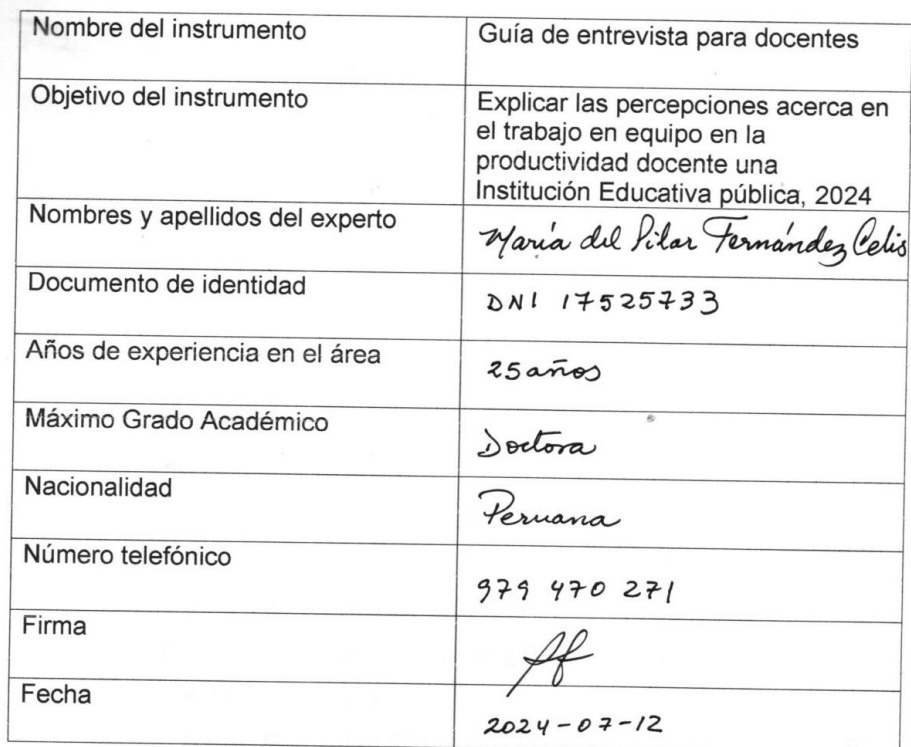 Nombre del instrumento
Guía de entrevista para docentes
Objetivo del instrumento
Explicar las percepciones acerca en
el trabajo en equipo en la
productividad docente una
Institución Educativa pública, 2024
Nombres y apellidos del experto
María del Pilar Fernández Celis
Documento de identidad
DNI 17525733
Años de experiencia en el área
25 años
Máximo Grado Académico
Doctora
Nacionalidad
Peruana
Número telefónico
979 470 271
Firma
Fecha
2024-07-12